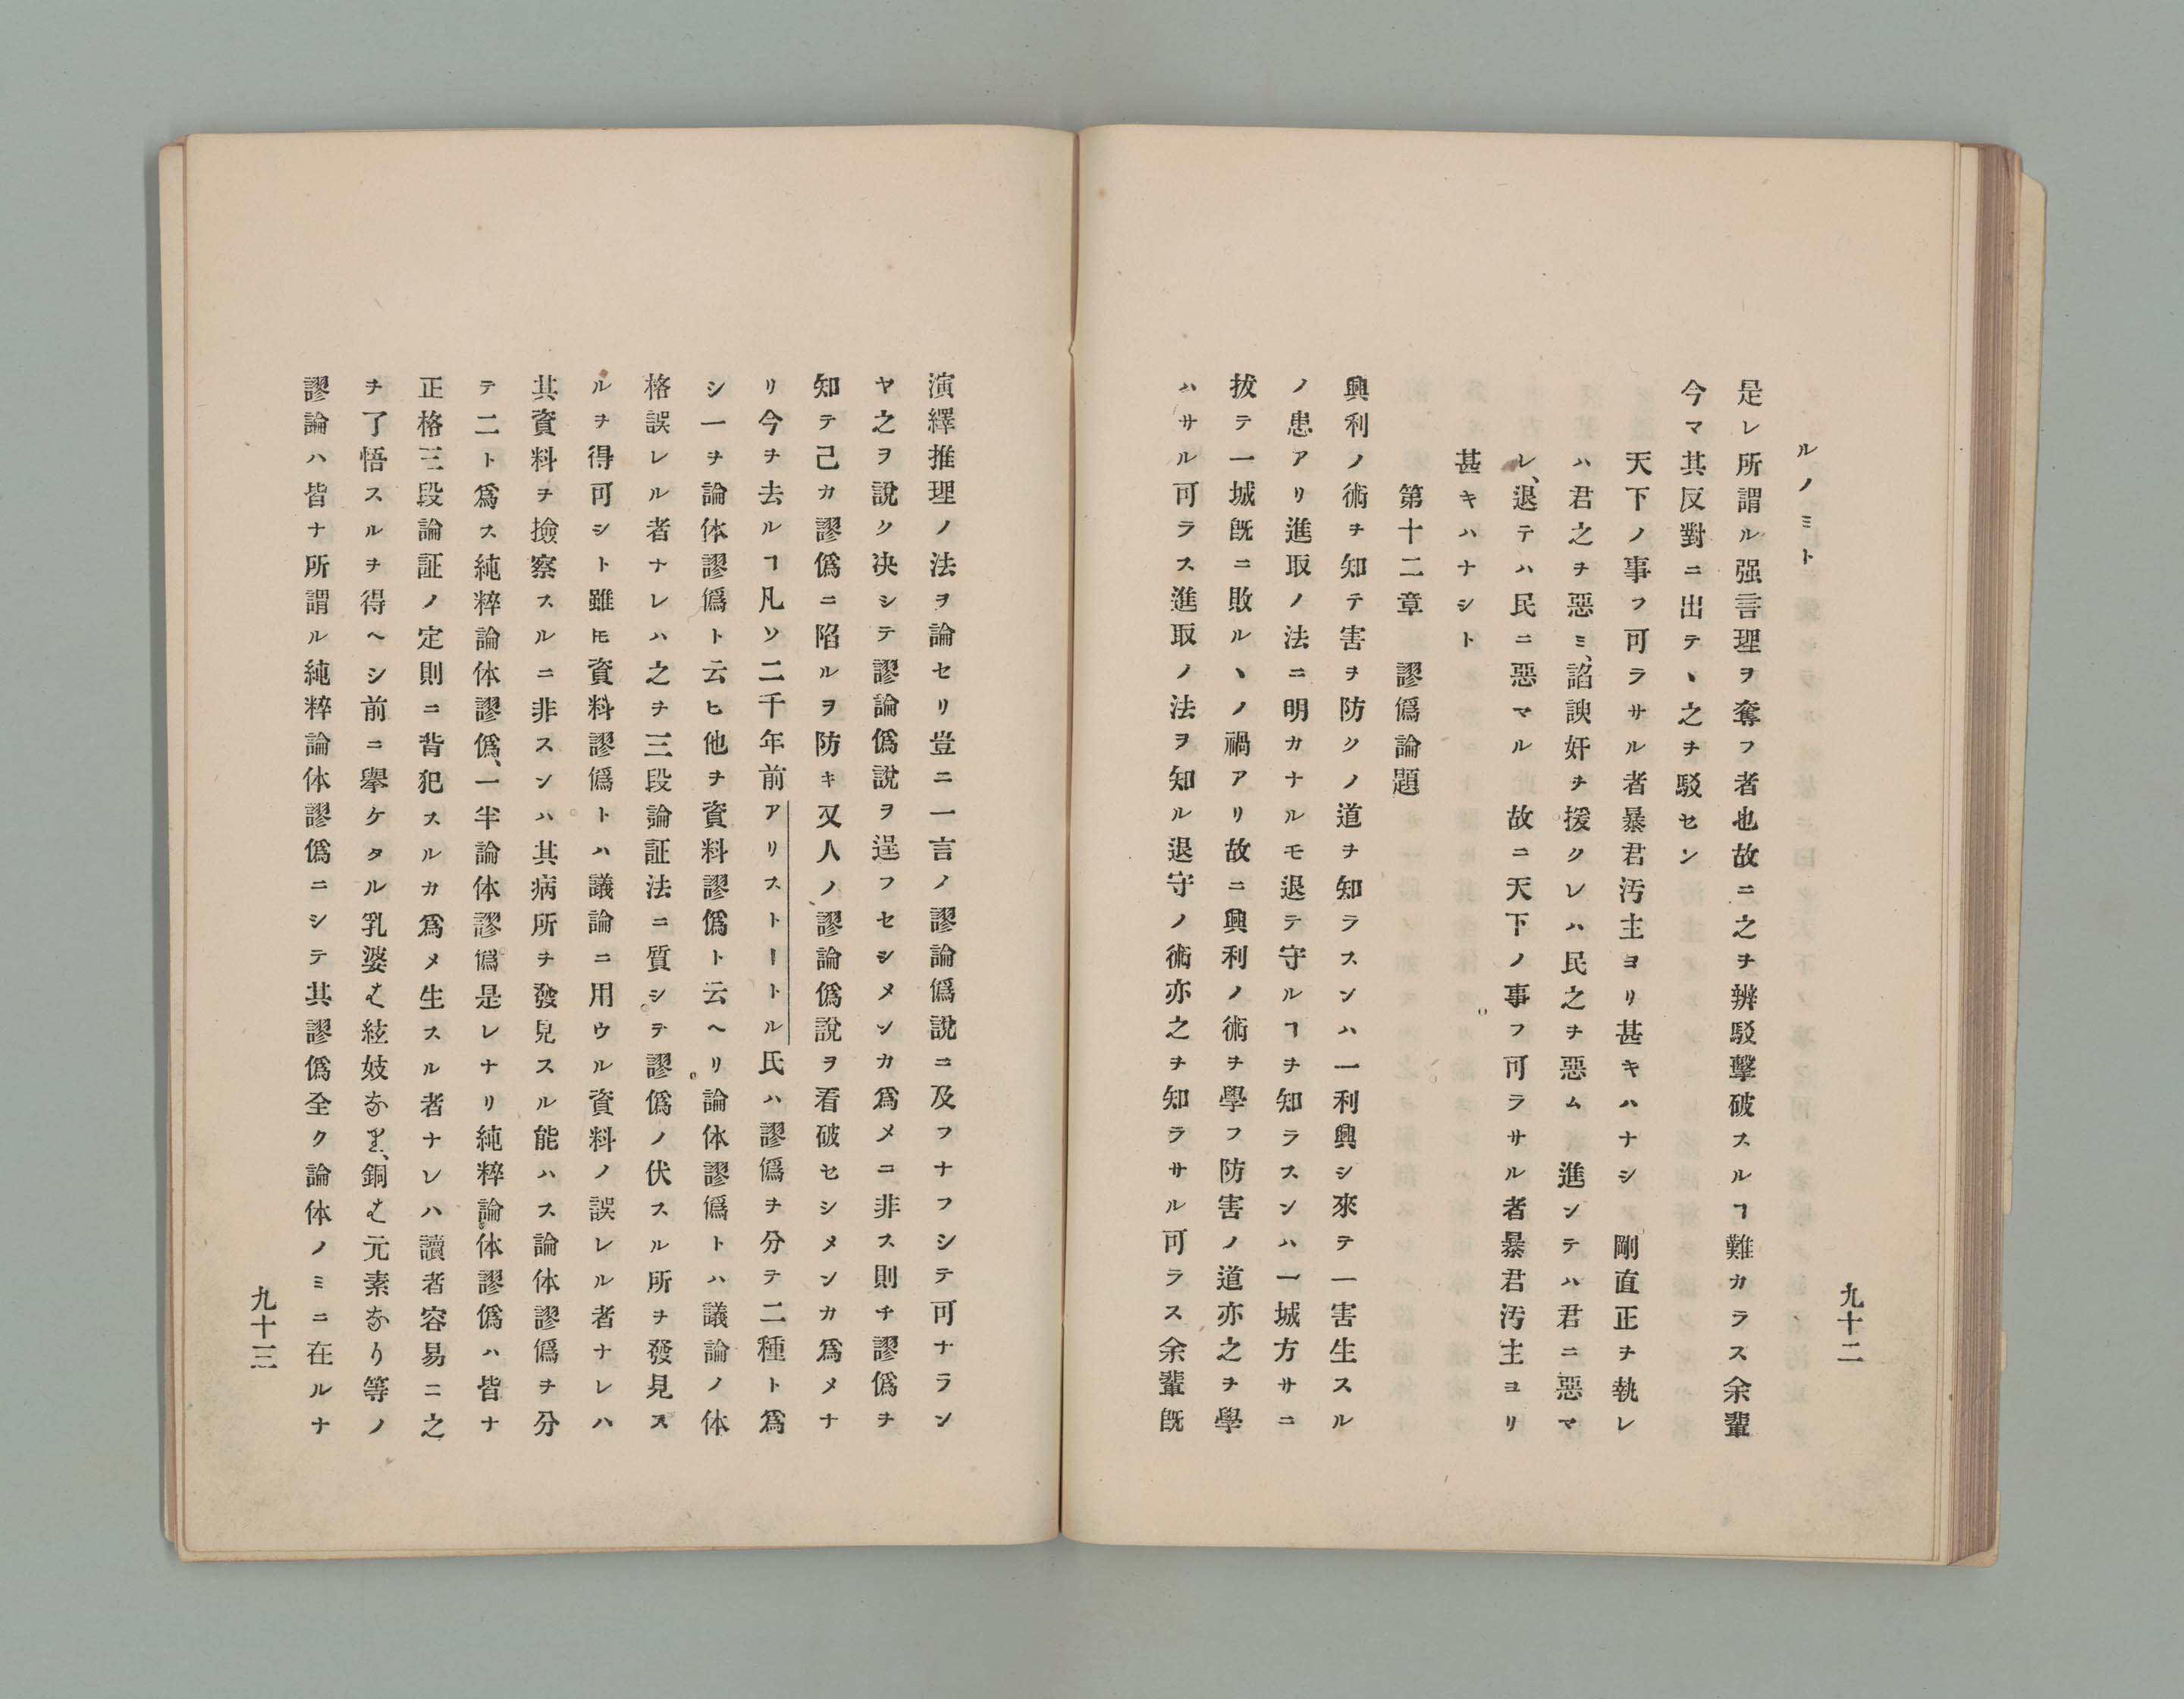 九十二
ルノミト
是レ所謂ル强言理ヲ奪フ者也故ニ之ヲ辨駁擊破スルヿ難カラス余輩
今マ其反對ニ出テヽ之ヲ駁セン
天下ノ事フ可ラサル者暴君汚主ヨリ甚キハナシ剛直正ヲ執レ
ハ君之ヲ惡ミ、諂諛奸ヲ援クレハ民之ヲ惡ム進ンテハ君ニ惡マ
レ、退テハ民ニ惡マル故ニ天下ノ事フ可ラサル者暴君汚主ヨリ
甚キハナシト
第十二章 謬僞論題
興利ノ術ヲ知テ害ヲ防クノ道ヲ知ラスンハ一利興シ來テ一害生スル
ノ患アリ進取ノ法ニ明カナルモ退テ守ルヿヲ知ラスンハ一城方サニ
拔テ一城既ニ敗ルヽノ禍アリ故ニ興利ノ術ヲ學フ防害ノ道亦之ヲ學
ハサル可ラス進取ノ法ヲ知ル退守ノ術亦之ヲ知ラサル可ラス余輩既
演繹推理ノ法ヲ論セリ豈ニ一言ノ謬論僞說ニ及フナフシテ可ナラン
ヤ之ヲ說ク决シテ謬論僞說ヲ逞フセシメンカ爲メニ非ス則チ謬僞ヲ
知テ己カ謬僞ニ陷ルヲ防キ又人ノ謬論僞說ヲ看破セシメンカ爲メナ
リ今ヲ去ルヿ凡ソ二千年前アリストートル氏ハ謬僞ヲ分テ二種ト爲
シ一ヲ論体謬僞ト云ヒ他ヲ資料謬僞ト云ヘリ。論体謬僞トハ議論ノ体
格誤レル者ナレハ之ヲ三段論証法ニ質シテ謬僞ノ伏スル所ヲ發見ス
ルヲ得可シト雖𪜈資料謬僞トハ議論ニ用ウル資料ノ誤レル者ナレハ
其資料ヲ撿察スルニ非スンハ其病所ヲ發見スル能ハス論体謬僞ヲ分
テ二ト爲ス純粹論体謬僞、一半論体謬僞是レナリ純粹論体謬僞ハ皆ナ
正格三段論証ノ定則ニ背犯スルカ爲メ生スル者ナレハ讀者容易ニ之
ヲ了悟スルヲ得ヘシ前ニ擧ケタル乳婆は絃妓なり、銅は元素なり等ノ
謬論ハ皆ナ所謂ル純粹論体謬僞ニシテ其謬僞全ク論体ノミニ在ルナ
九十三